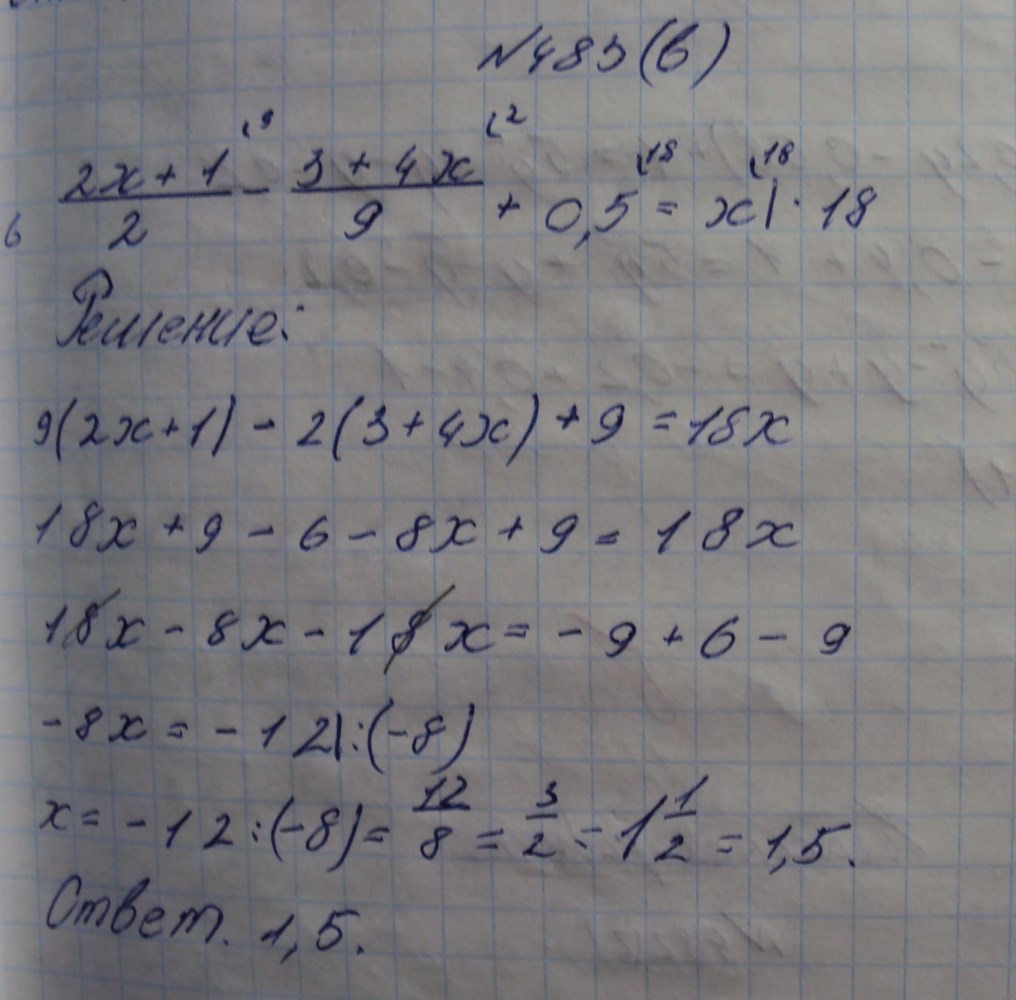 №483(в)
(2x + 1)/2 ⁽⁹ - (3 + 4x)/9 ⁽² + 0,5 ⁽¹⁸ = x ⁽¹⁸ | · 18
Решение:
9(2x+1) - 2(3+4x) + 9 = 18x
18x + 9 - 6 - 8x + 9 = 18x
18x - 8x - 18x = - 9 + 6 - 9
-8x = - 12 | :(-8)
x = - 12 :(-8) = 12/8 = 3/2 = 1 1/2 = 1,5.
Ответ. 1,5.